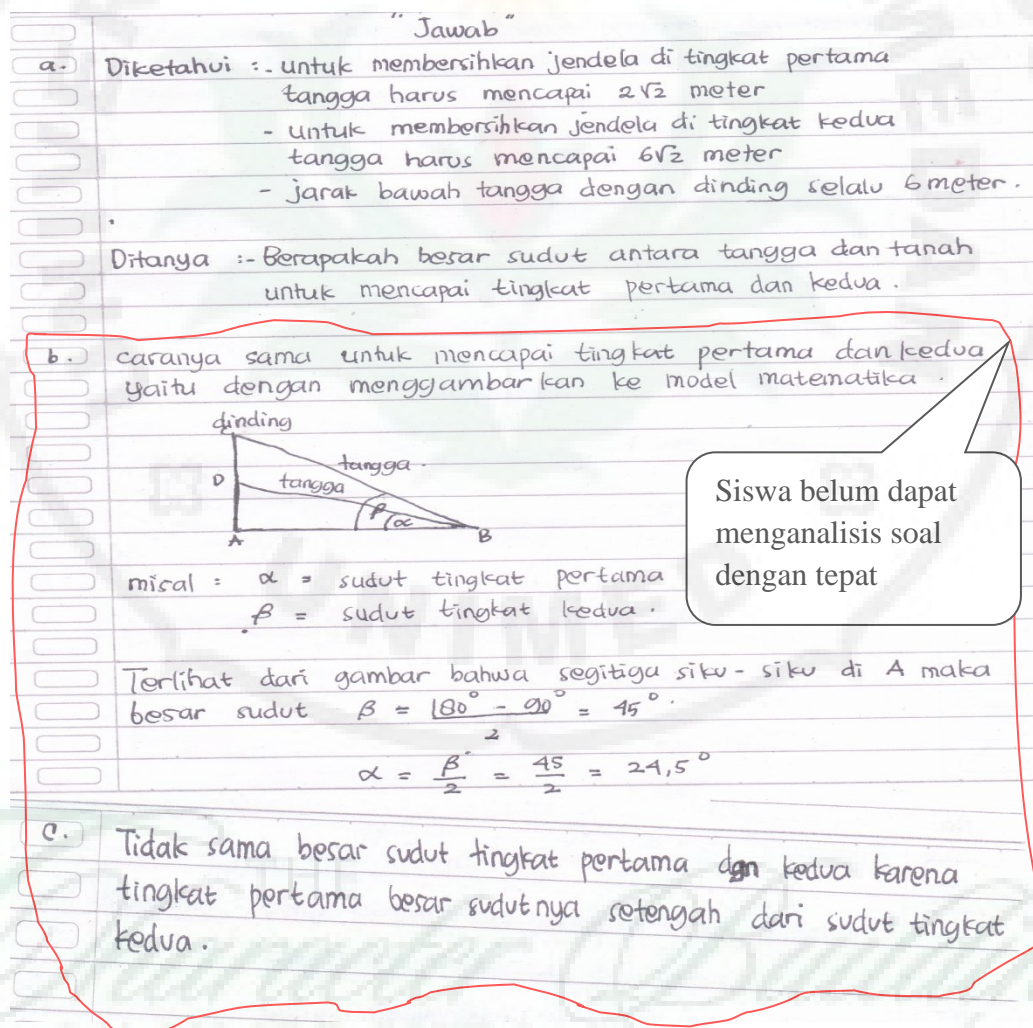 "Jawab"
a. Diketahui :- untuk membersihkan jendela di tingkat pertama
tangga harus mencapai 2√2 meter
- untuk membersihkan jendela di tingkat kedua
tangga harus mencapai 6√2 meter
- jarak bawah tangga dengan dinding selalu 6 meter.
Ditanya :- Berapakah besar sudut antara tangga dan tanah
untuk mencapai tingkat pertama dan kedua.
b. caranya sama untuk mencapai tingkat pertama dan kedua
yaitu dengan menggambarkan ke model matematika.
dinding
tangga.
D tangga
β α
A B
misal : α = sudut tingkat pertama
β = sudut tingkat kedua.
Terlihat dari gambar bahwa segitiga siku-siku di A maka
besar sudut β = (180° - 90°)/2 = 45°.
α = β/2 = 45/2 = 24,5°
c. Tidak sama besar sudut tingkat pertama dan kedua karena
tingkat pertama besar sudutnya setengah dari sudut tingkat
kedua.
Siswa belum dapat
menganalisis soal
dengan tepat
UNIMED